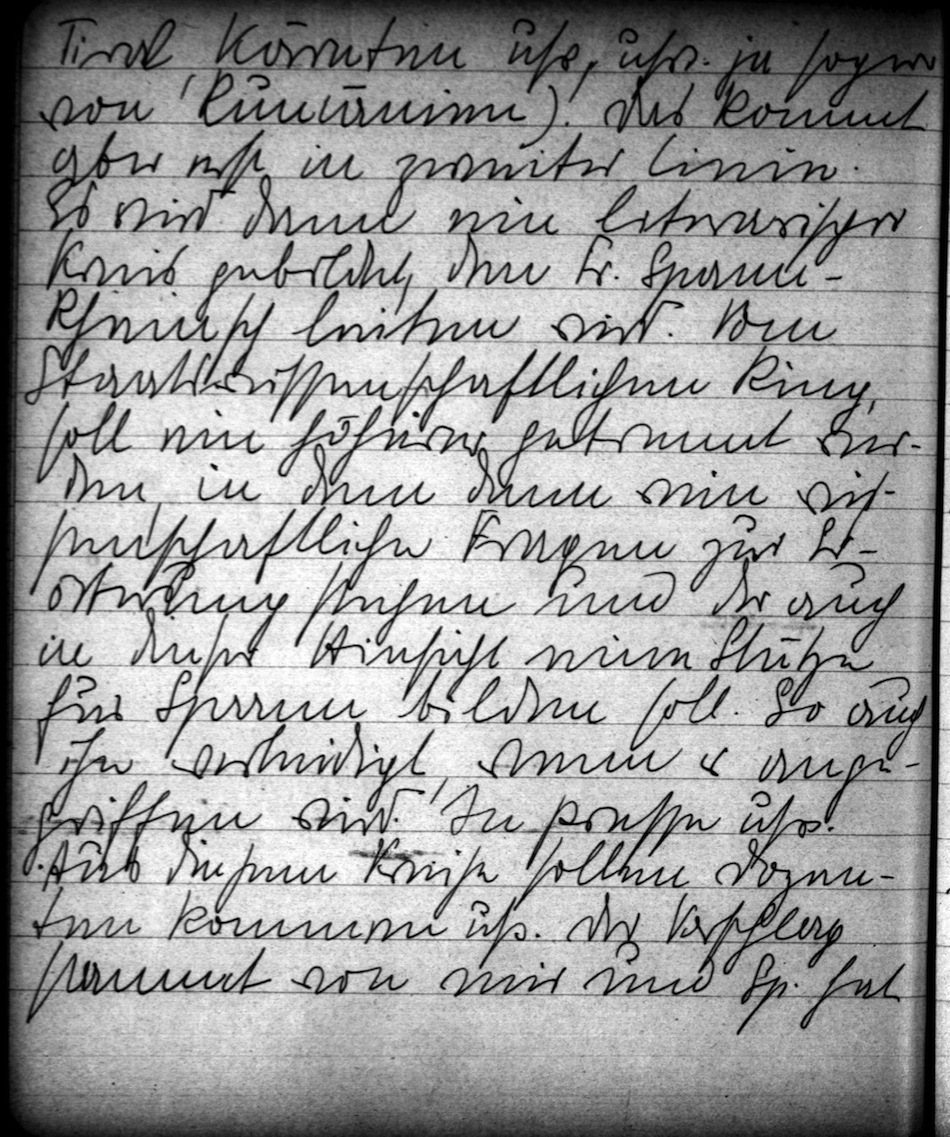 Tirol Kärnten usw, usw. ja sogar
von Rumänien). Das kommt
aber erst in zweiter Linie.
Es wird dann ein literarischer
Kreis gebildet, den Fr. Spann-
Rheinsch leiten wird. Vom
Staatswissenschaftlichen Ring,
soll ein höherer getrennt wer-
den, in dem dann rein wis-
senschaftliche Fragen zur Er-
örterung stehen und der auch
in dieser Hinsicht eine Stütze
für Spann bilden soll. So auch
ihn verteidigt, wenn er ange-
griffen wird. In Presse usw.
Aus diesem Kreise sollen Dozen-
ten kommen usw. Der Vorschlag
stammt von mir und Sp. hat